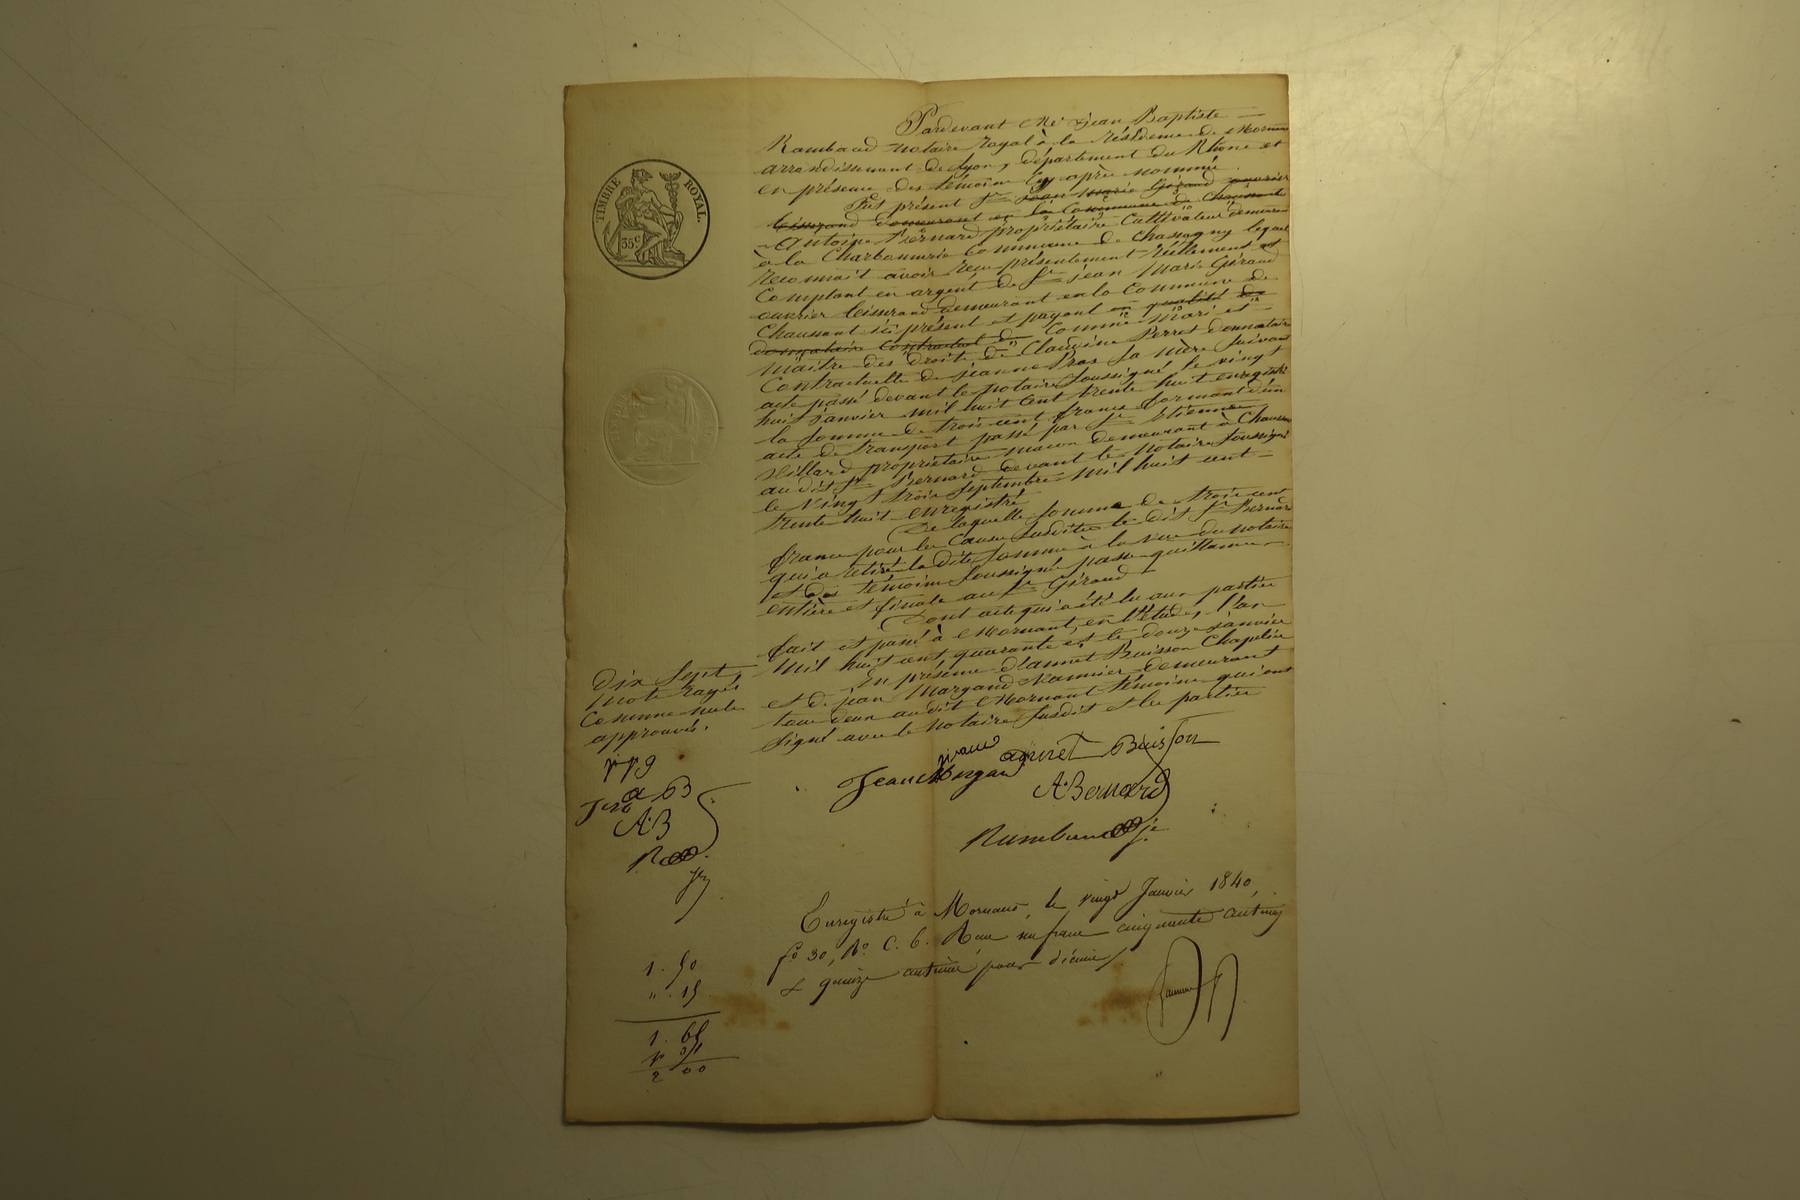 Pardevant Me Jean Baptiste
Rambaud notaire Royal à la résidence de Mornant
arrondissement de Lyon, département du Rhône et
en présence des témoins cy après nommé
Fut présent Sr Jean Marie Géraud ouvrier
tisserand demeurant en la Commune de Chaussant
Antoine Bernard propriétaire Cultivateur demeurant
à la Charbonnerie Commune de Chassagny lequel
reconnait avoir reçu présentement réellement et
Comptant en argent de Sr jean Marie Géraud
ouvrier tisserand demeurant en la Commune de
Chaussant ici présent et payant en qualité de
donnataire Contractuel de Comme Mari et
Maitre des droits de Claudine Perret donnataire
Contractuelle de jeanne Bras sa Mère suivant
acte passé devant le notaire soussigné le vingt
huit Janvier mil huit cent trente huit enregistré
la somme de trois cent francs formant d'un
acte de transport passé par Sr Etienne
Villard propriétaire maçon demeurant à Chaussant
au dit Sr Bernard devant le notaire soussigné
le vingt trois Septembre Mil huit cent
trente huit enregistré
De laquelle somme de trois cent
francs pour les Causes susdites le dit Sr Bernard
qui a retiré la dite somme à la vue du notaire
et des témoins soussigné passe quittance
entière et finale au Sr Géraud
Dont acte qui a été lu aux parties
fait et passé à Mornant, en l'étude, l'an
Mil huit cent quarante et le douze Janvier
En présence d'annet Buisson Chapelier
et de jean Margand Vannier demeurant
tous deux au dit Mornant témoins qui ont
signé avec le notaire susdit et les parties
TIMBRE ROYAL.
35c
Dix Sept
mots rayés
Comme nuls
approuvés.
a B
AB
R
Jean Margand
annet Buisson
A. Bernard
Rambaud
Enregistré à Mornant, le vingt Janvier 1840,
fo 30, Ro C. 6. Reçu un franc cinquante centimes
& quinze centimes pour décime
1. 50
" . 15
1. 65
2 00